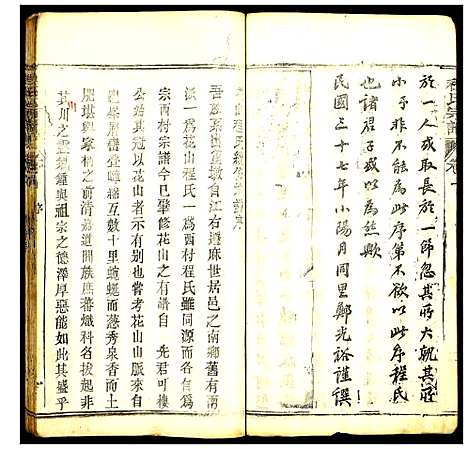 於一人或取長於一師忽其所大執其所
小予非不能為此序第不欲以此序程氏
也諸君子咸以為然歟
民國三十七年小陽月同里鄭光裕謹譔
程氏宗譜 卷一
吾族系出篁墩自江右遷麻世居邑之南鄉舊有南
淡一為花山程氏一為西村程氏雖同源而各為
宗西村宗譜今已肇修花山之有譜自 先君可樓
公始其冠以花山者示有別也嘗考花山山脈來自
牟層巒疊嶂綿互數十里蜿蜒而蒼秀泉香而
肥堪輿家稱之前清嘉道間族庶蕃熾科名拔起非
其川之靈鍾與祖宗之德澤厚惡能如此其盛乎